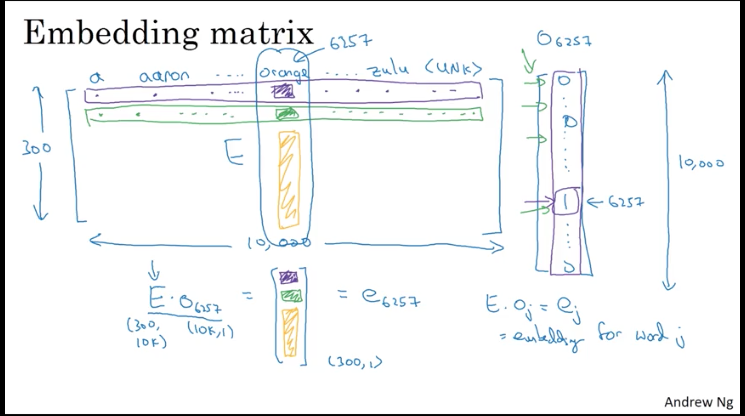 Embedding matrix
6257
O6257
a aaron ..... orange ..... zulu <UNK>
0
300
E
0
10,000
1 ← 6257
10,000
0
E · O6257 = [ ] = e6257
(300, 10K) (10K,1)
(300,1)
E. Oj = ej
= embedding for word j
Andrew Ng